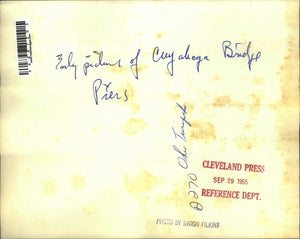 Early pictures of Cuyahoga Bridge
Piers
A270 Ohio Turnpike
CLEVELAND PRESS
SEP 29 1955
REFERENCE DEPT.
PHOTO BY BYRON FILKINS